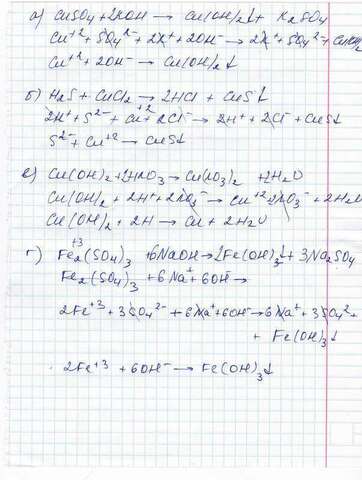 а) CuSO₄ + 2KOH → Cu(OH)₂↓ + K₂SO₄
Cu⁺² + SO₄²⁻ + 2K⁺ + 2OH⁻ → 2K⁺ + SO₄²⁻ + Cu(OH)₂
Cu⁺² + 2OH⁻ → Cu(OH)₂↓
б) H₂S + CuCl₂ → 2HCl + CuS↓
2H⁺ + S²⁻ + Cu⁺² + 2Cl⁻ → 2H⁺ + 2Cl⁻ + CuS↓
S²⁻ + Cu⁺² → CuS↓
в) Cu(OH)₂ + 2HNO₃ → Cu(NO₃)₂ + 2H₂O
Cu(OH)₂ + 2H⁺ + 2NO₃⁻ → Cu⁺² + 2NO₃⁻ + 2H₂O
Cu(OH)₂ + 2H → Cu + 2H₂O
г) Fe₂⁺³(SO₄)₃ + 6NaOH → 2Fe(OH)₃↓ + 3Na₂SO₄
Fe₂(SO₄)₃ + 6Na⁺ + 6OH⁻ →
2Fe⁺³ + 3SO₄²⁻ + 6Na⁺ + 6OH⁻ → 6Na⁺ + 3SO₄²⁻ +
+ Fe(OH)₃↓
2Fe⁺³ + 6OH⁻ → Fe(OH)₃↓